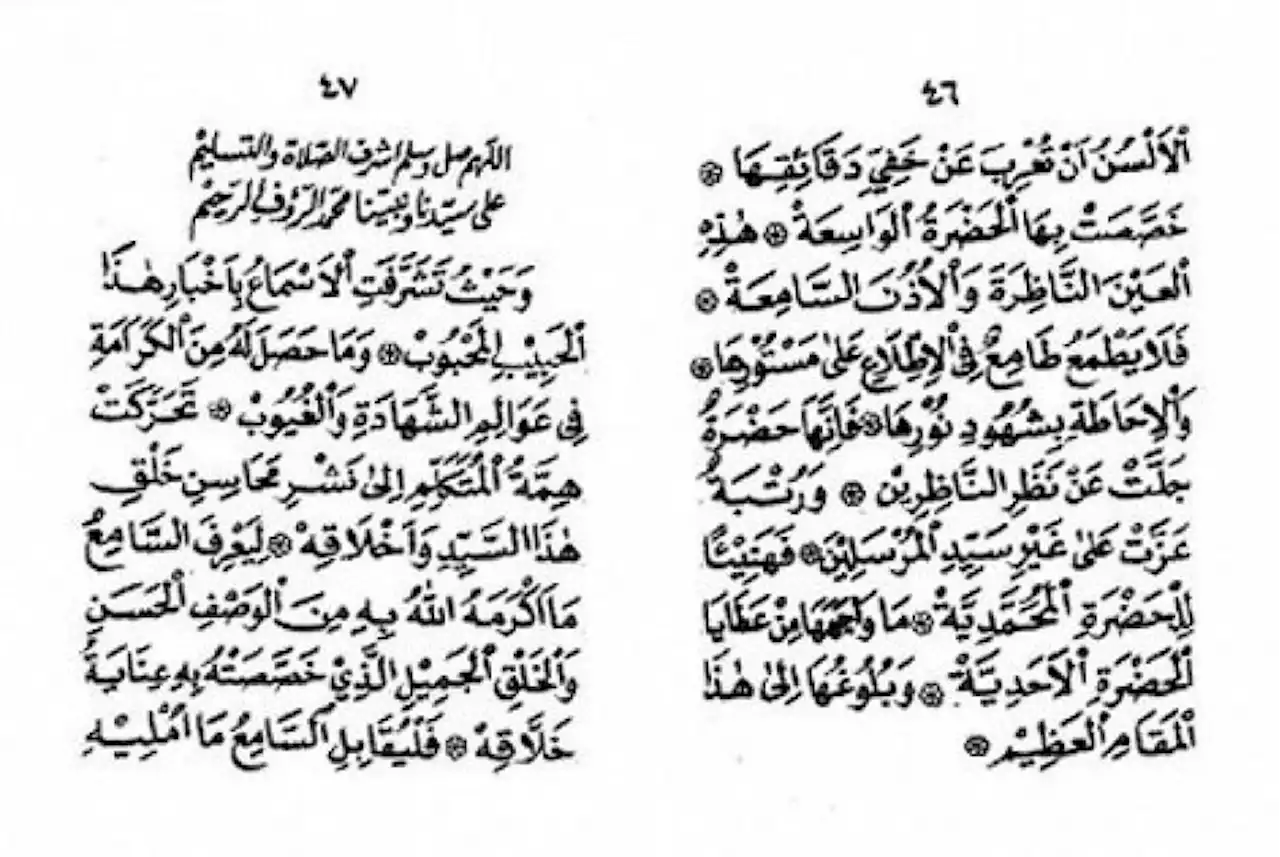 ٤٦
اَلْأَلْسُنُ اَنْ تُعْرِبَ عَنْ خَفِيِّ دَقَائِقِهَا ۞
خَصَّصَتْ بِهَا الْحَضْرَةُ الْوَاسِعَةْ ۞ هٰذِهِ
الْعَيْنَ النَّاظِرَةَ وَالْأُذُنَ السَّامِعَةْ ۞
فَلَا يَطْمَعُ طَامِعٌ فِى الْاِطِّلَاعِ عَلىٰ مَسْتُوْرِهَا ۞
وَالْاِحَاطَةِ بِشُهُوْدِ نُوْرِهَا ۞ فَاِنَّهَا حَضْرَةٌ
جَلَّتْ عَنْ نَظَرِ النَّاظِرِيْنَ ۞ وَرُتْبَةٌ
عَزَّتْ عَلىٰ غَيْرِ سَيِّدِ الْمُرْسَلِيْنَ ۞ فَهَنِيْئًا
لِلْحَضْرَةِ الْمُحَمَّدِيَّةْ ۞ مَا وَاجَهَهَا مِنْ عَطَايَا
الْحَضْرَةِ الْأَحَدِيَّةْ ۞ وَبُلُوْغُهَا اِلىٰ هٰذَا
الْمَقَامِ الْعَظِيْمِ ۞
٤٧
اللّهم صل وسلم اشرف الصّلاة والتسليم
على سيّدنا ونبيّنا محمّد الرّؤف الرّحيم
وَحَيْثُ تَشَرَّفَتِ الْاَسْمَاعُ بِاَخْبَارِ هٰذَا
الْحَبِيْبِ الْمَحْبُوْبْ ۞ وَمَا حَصَلَ لَهُ مِنَ الْكَرَامَةِ
فِى عَوَالِمِ الشَّهَادَةِ وَالْغُيُوْبْ ۞ تَحَرَّكَتْ
هِمَّةُ الْمُتَكَلِّمِ اِلىٰ نَشْرِ مَحَاسِنِ خَلْقِ
هٰذَا السَّيِّدِ وَاَخْلَاقِهْ ۞ لِيَعْرِفَ السَّامِعُ
مَا اَكْرَمَهُ اللّٰهُ بِهِ مِنَ الْوَصْفِ الْحَسَنِ
وَالْخَلْقِ الْجَمِيْلِ الَّذِيْ خَصَّصَتْهُ بِهِ عِنَايَةُ
خَلَّاقِهْ ۞ فَلْيُقَابِلِ السَّامِعُ مَا اُمْلِيْهِ